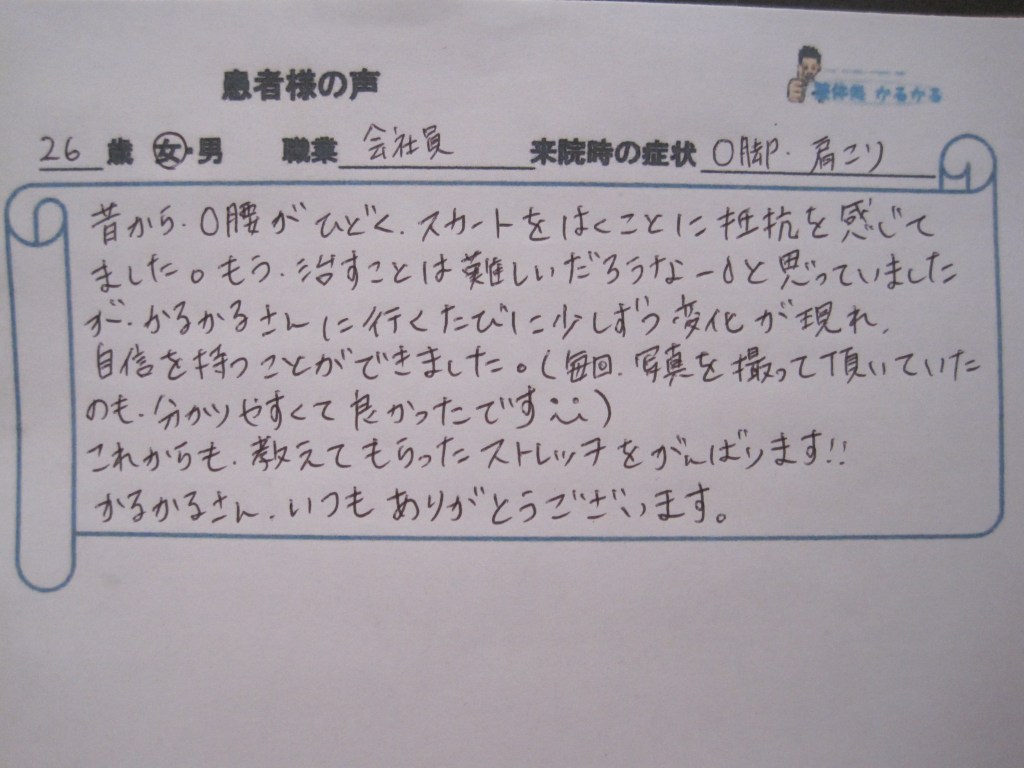 患者様の声
整体処 かるかる
26 歳 女・男 職業 会社員 来院時の症状 O脚・肩こり
昔から、O腰がひどく、スカートをはくことに抵抗を感じて
ました。もう、治すことは難しいだろうなーと思っていました
が、かるかるさんに行くたびに少しずつ変化が現れ、
自信を持つことができました。(毎回、写真を撮って頂いていた
のも、分かりやすくて良かったです)
これからも、教えてもらったストレッチをがんばります!!
かるかるさん、いつもありがとうございます。